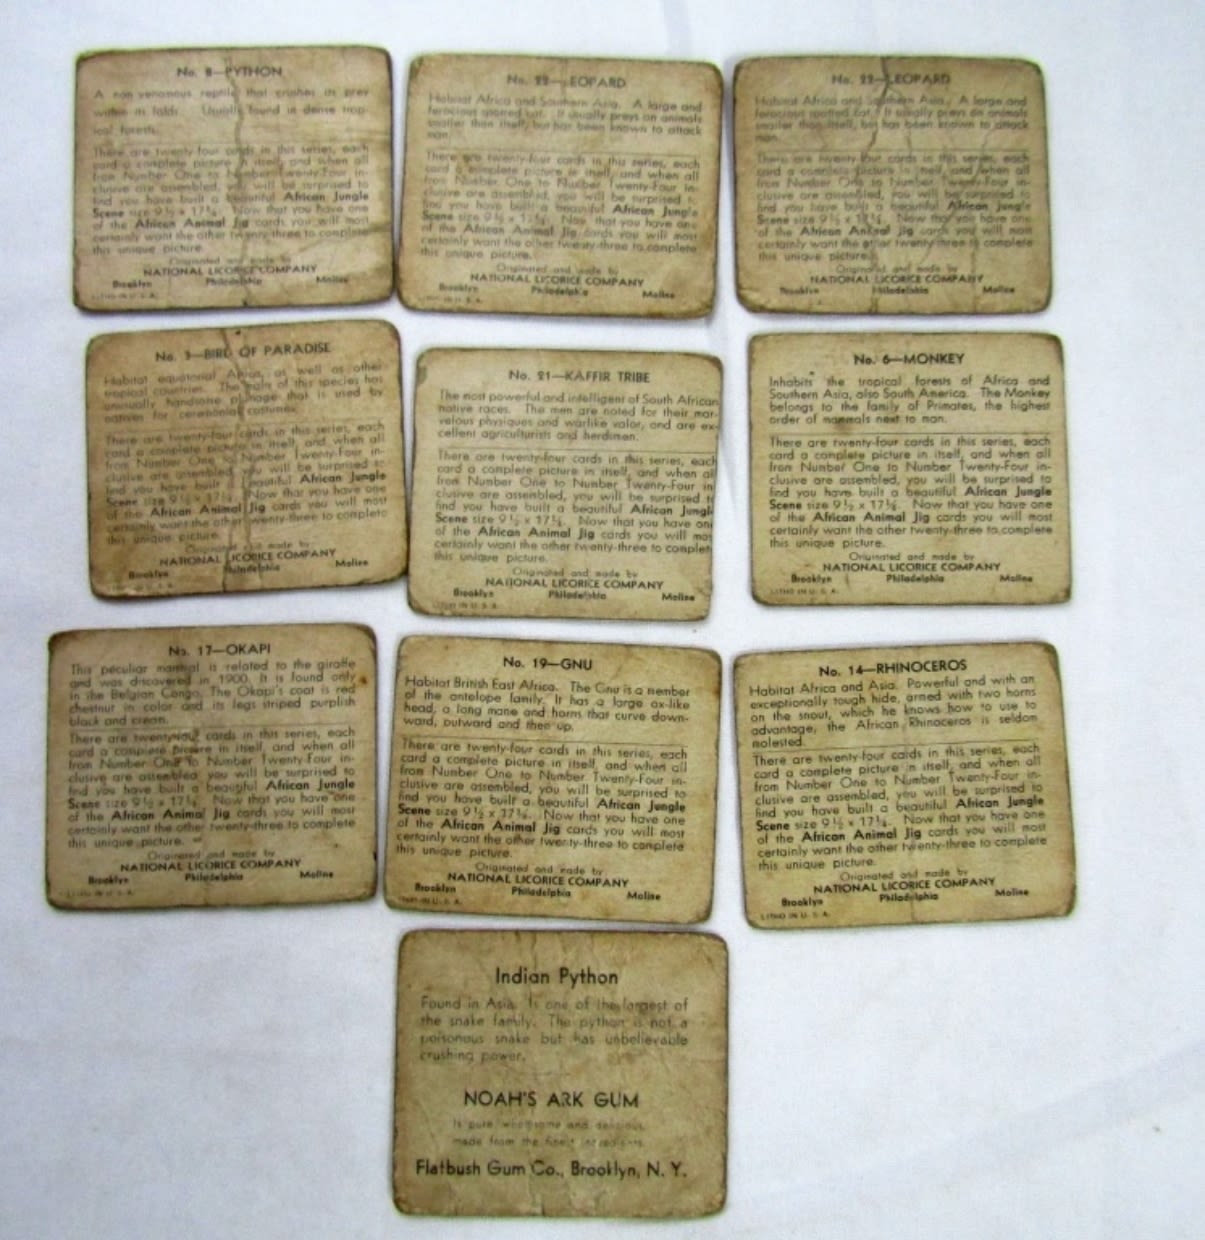 No. 8—PYTHON
A non venomous reptile that crushes its prey
within its folds. Usually found in dense trop-
ical forests.
There are twenty four cards in this series, each
card a complete picture in itself, and when all
from Number One to Number Twenty-Four in-
clusive are assembled, you will be surprised to
find you have built a beautiful African Jungle
Scene size 9½ x 17¼. Now that you have one
of the African Animal Jig cards you will most
certainly want the other twenty-three to complete
this unique picture.
Originated and made by
NATIONAL LICORICE COMPANY
Brooklyn Philadelphia Moline
LITHO IN U. S. A.
No. 22—LEOPARD
Habitat Africa and Southern Asia. A large and
ferocious spotted cat. It usually preys on animals
smaller than itself, but has been known to attack
man.
There are twenty-four cards in this series, each
card a complete picture in itself, and when all
from Number One to Number Twenty-Four in-
clusive are assembled, you will be surprised to
find you have built a beautiful African Jungle
Scene size 9½ x 17¼. Now that you have one
of the African Animal Jig cards you will most
certainly want the other twenty-three to complete
this unique picture.
Originated and made by
NATIONAL LICORICE COMPANY
Brooklyn Philadelphia Moline
LITHO IN U. S. A.
No. 22—LEOPARD
Habitat Africa and Southern Asia. A large and
ferocious spotted cat. It usually preys on animals
smaller than itself, but has been known to attack
man.
There are twenty-four cards in this series, each
card a complete picture in itself, and when all
from Number One to Number Twenty-Four in-
clusive are assembled, you will be surprised to
find you have built a beautiful African Jungle
Scene size 9½ x 17¼. Now that you have one
of the African Animal Jig cards you will most
certainly want the other twenty-three to complete
this unique picture.
Originated and made by
NATIONAL LICORICE COMPANY
Brooklyn Philadelphia Moline
LITHO IN U. S. A.
No. 3—BIRD OF PARADISE
Habitat equatorial Africa, as well as other
tropical countries. The male of this species has
unusually handsome plumage that is used by
natives for ceremonial costumes.
There are twenty-four cards in this series, each
card a complete picture in itself, and when all
from Number One to Number Twenty-Four in-
clusive are assembled, you will be surprised to
find you have built a beautiful African Jungle
Scene size 9½ x 17¼. Now that you have one
of the African Animal Jig cards you will most
certainly want the other twenty-three to complete
this unique picture.
Originated and made by
NATIONAL LICORICE COMPANY
Brooklyn Philadelphia Moline
U. S. A.
No. 21—KAFFIR TRIBE
The most powerful and intelligent of South African
native races. The men are noted for their mar-
velous physiques and warlike valor, and are ex-
cellent agriculturists and herdsmen.
There are twenty-four cards in this series, each
card a complete picture in itself, and when all
from Number One to Number Twenty-Four in
clusive are assembled, you will be surprised to
find you have built a beautiful African Jungle
Scene size 9½ x 17¼. Now that you have one
of the African Animal Jig cards you will mos
certainly want the other twenty-three to complet
this unique picture.
Originated and made by
NATIONAL LICORICE COMPANY
Brooklyn Philadelphia Moline
LITHO IN U. S. A.
No. 6—MONKEY
Inhabits the tropical forests of Africa and
Southern Asia, also South America. The Monkey
belongs to the family of Primates, the highest
order of mammals next to man.
There are twenty-four cards in this series, each
card a complete picture in itself, and when all
from Number One to Number Twenty-Four in-
clusive are assembled, you will be surprised to
find you have built a beautiful African Jungle
Scene size 9½ x 17¼. Now that you have one
of the African Animal Jig cards you will most
certainly want the other twenty-three to complete
this unique picture.
Originated and made by
NATIONAL LICORICE COMPANY
Brooklyn Philadelphia Moline
LITHO IN U. S. A.
No. 17—OKAPI
This peculiar mammal is related to the giraffe
and was discovered in 1900. It is found only
in the Belgian Congo. The Okapi's coat is red
chestnut in color and its legs striped purplish
black and cream.
There are twenty-four cards in this series, each
card a complete picture in itself, and when all
from Number One to Number Twenty-Four in-
clusive are assembled you will be surprised to
find you have built a beautiful African Jungle
Scene size 9½ x 17¼. Now that you have one
of the African Animal Jig cards you will most
certainly want the other twenty-three to complete
this unique picture.
Originated and made by
NATIONAL LICORICE COMPANY
Brooklyn Philadelphia Moline
LITHO IN U. S. A.
No. 19—GNU
Habitat British East Africa. The Gnu is a member
of the antelope family. It has a large ox-like
head, a long mane and horns that curve down-
ward, outward and then up.
There are twenty-four cards in this series, each
card a complete picture in itself, and when all
from Number One to Number Twenty-Four in-
clusive are assembled, you will be surprised to
find you have built a beautiful African Jungle
Scene size 9½ x 17¼. Now that you have one
of the African Animal Jig cards you will most
certainly want the other twenty-three to complete
this unique picture.
Originated and made by
NATIONAL LICORICE COMPANY
Brooklyn Philadelphia Moline
LITHO IN U. S. A.
No. 14—RHINOCEROS
Habitat Africa and Asia. Powerful and with an
exceptionally tough hide, armed with two horns
on the snout, which he knows how to use to
advantage, the African Rhinoceros is seldom
molested.
There are twenty-four cards in this series, each
card a complete picture in itself, and when all
from Number One to Number Twenty-Four in-
clusive are assembled, you will be surprised to
find you have built a beautiful African Jungle
Scene size 9½ x 17¼. Now that you have one
of the African Animal Jig cards you will most
certainly want the other twenty-three to complete
this unique picture.
Originated and made by
NATIONAL LICORICE COMPANY
Brooklyn Philadelphia Moline
LITHO IN U. S. A.
Indian Python
Found in Asia. Is one of the largest of
the snake family. The python is not a
poisonous snake but has unbelievable
crushing power.
NOAH'S ARK GUM
Is pure wholesome and delicious,
made from the finest ingredients.
Flatbush Gum Co., Brooklyn, N. Y.